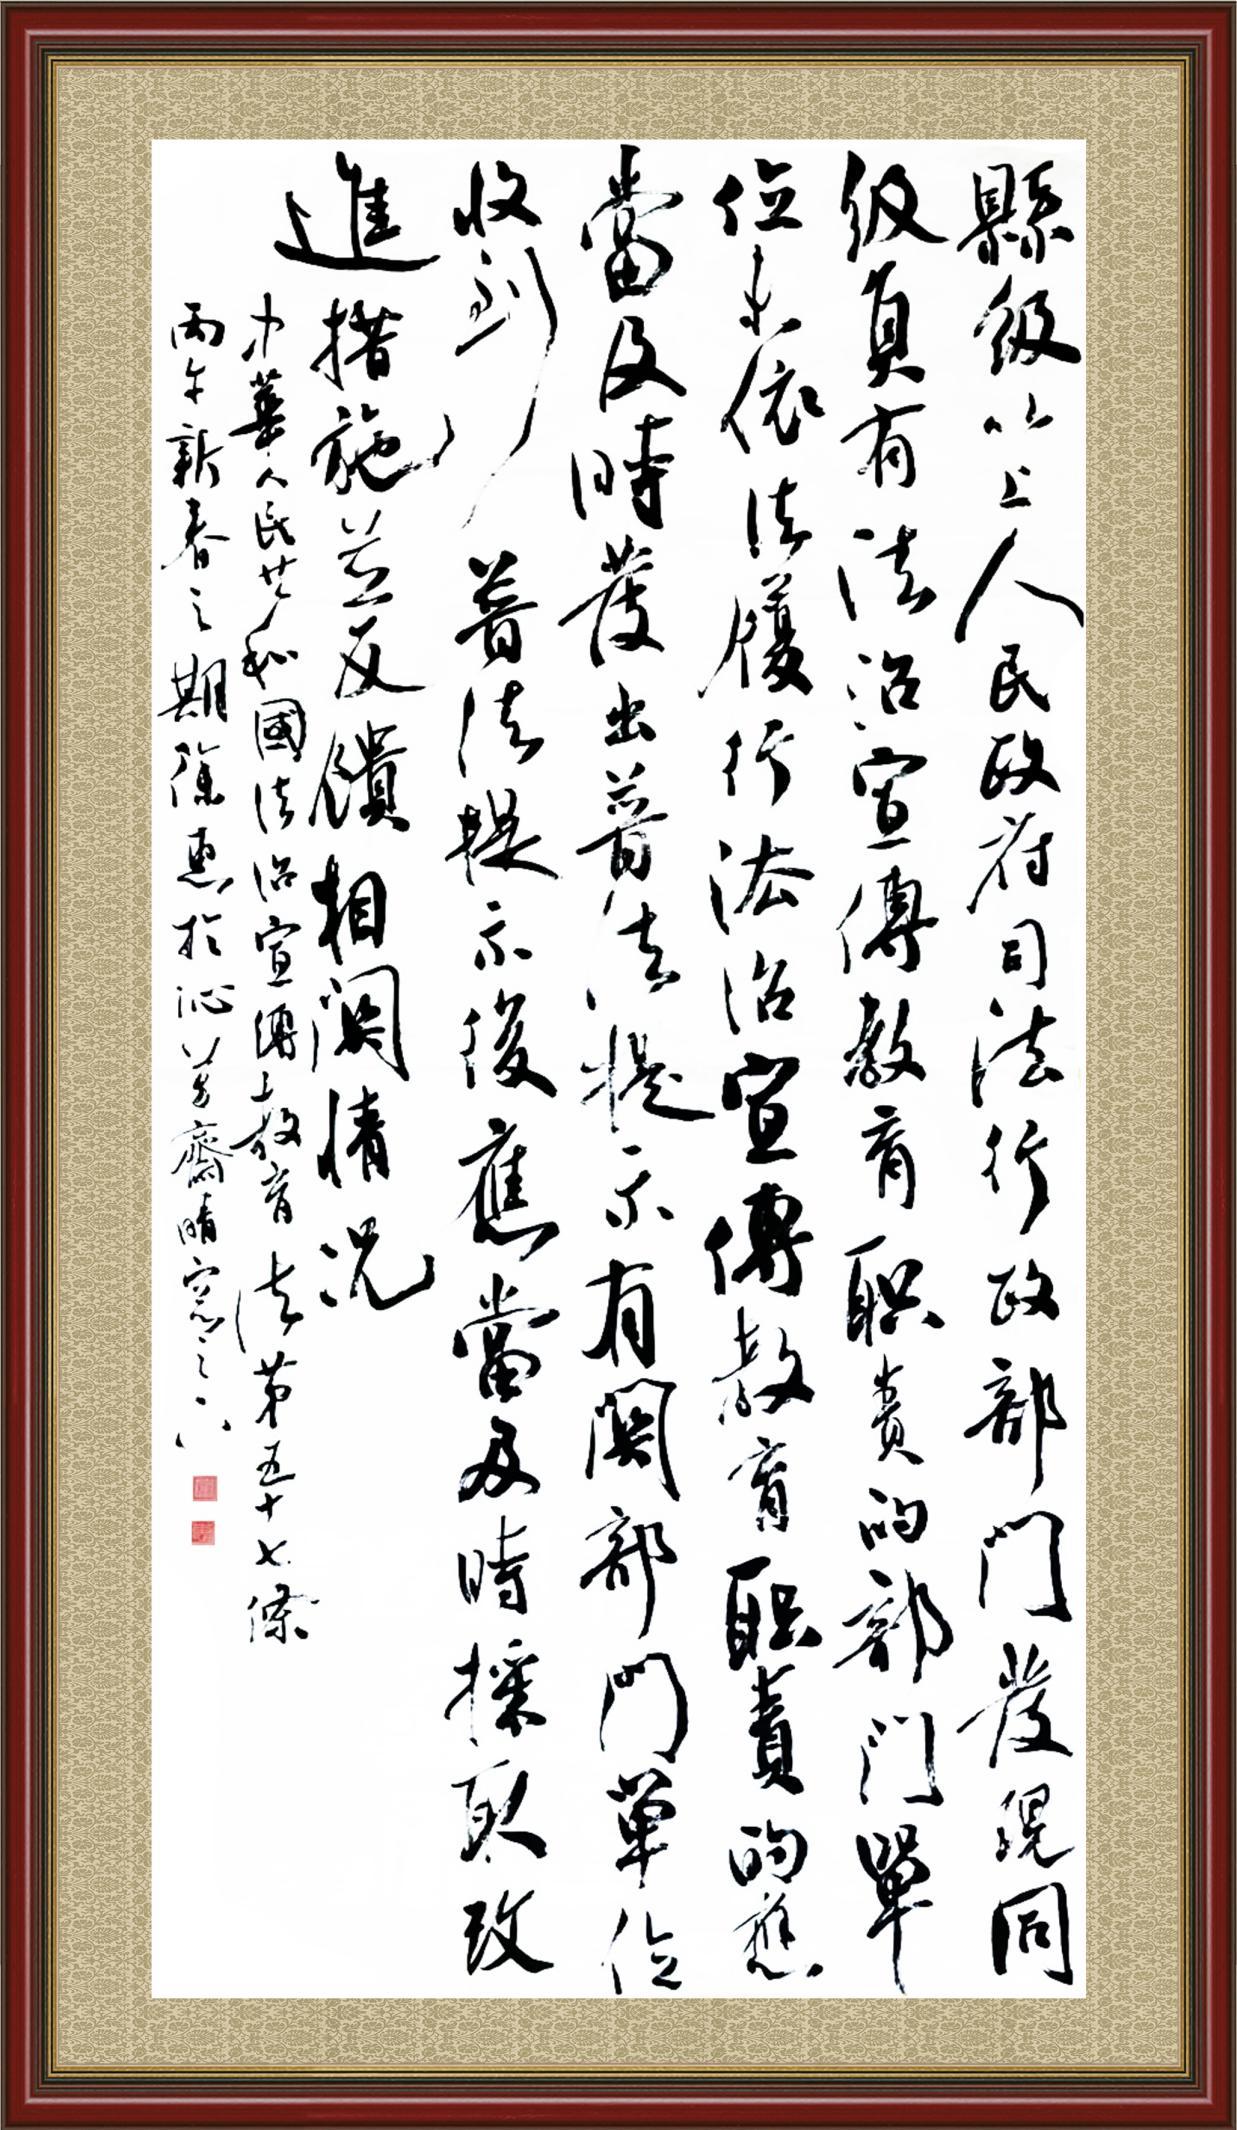 縣級以上人民政府司法行政部門發現同
級負有法治宣傳教育职責的部門單
位未依法履行法治宣傳教育职責的應
當及時發出普法提示有関部門單位
收到普法提示後應當及時採取改
進措施並反饋相関情况
中華人民共和國法治宣傳教育法第五十七條
丙午新春之期徐惠於沁芳齋晴窓之下